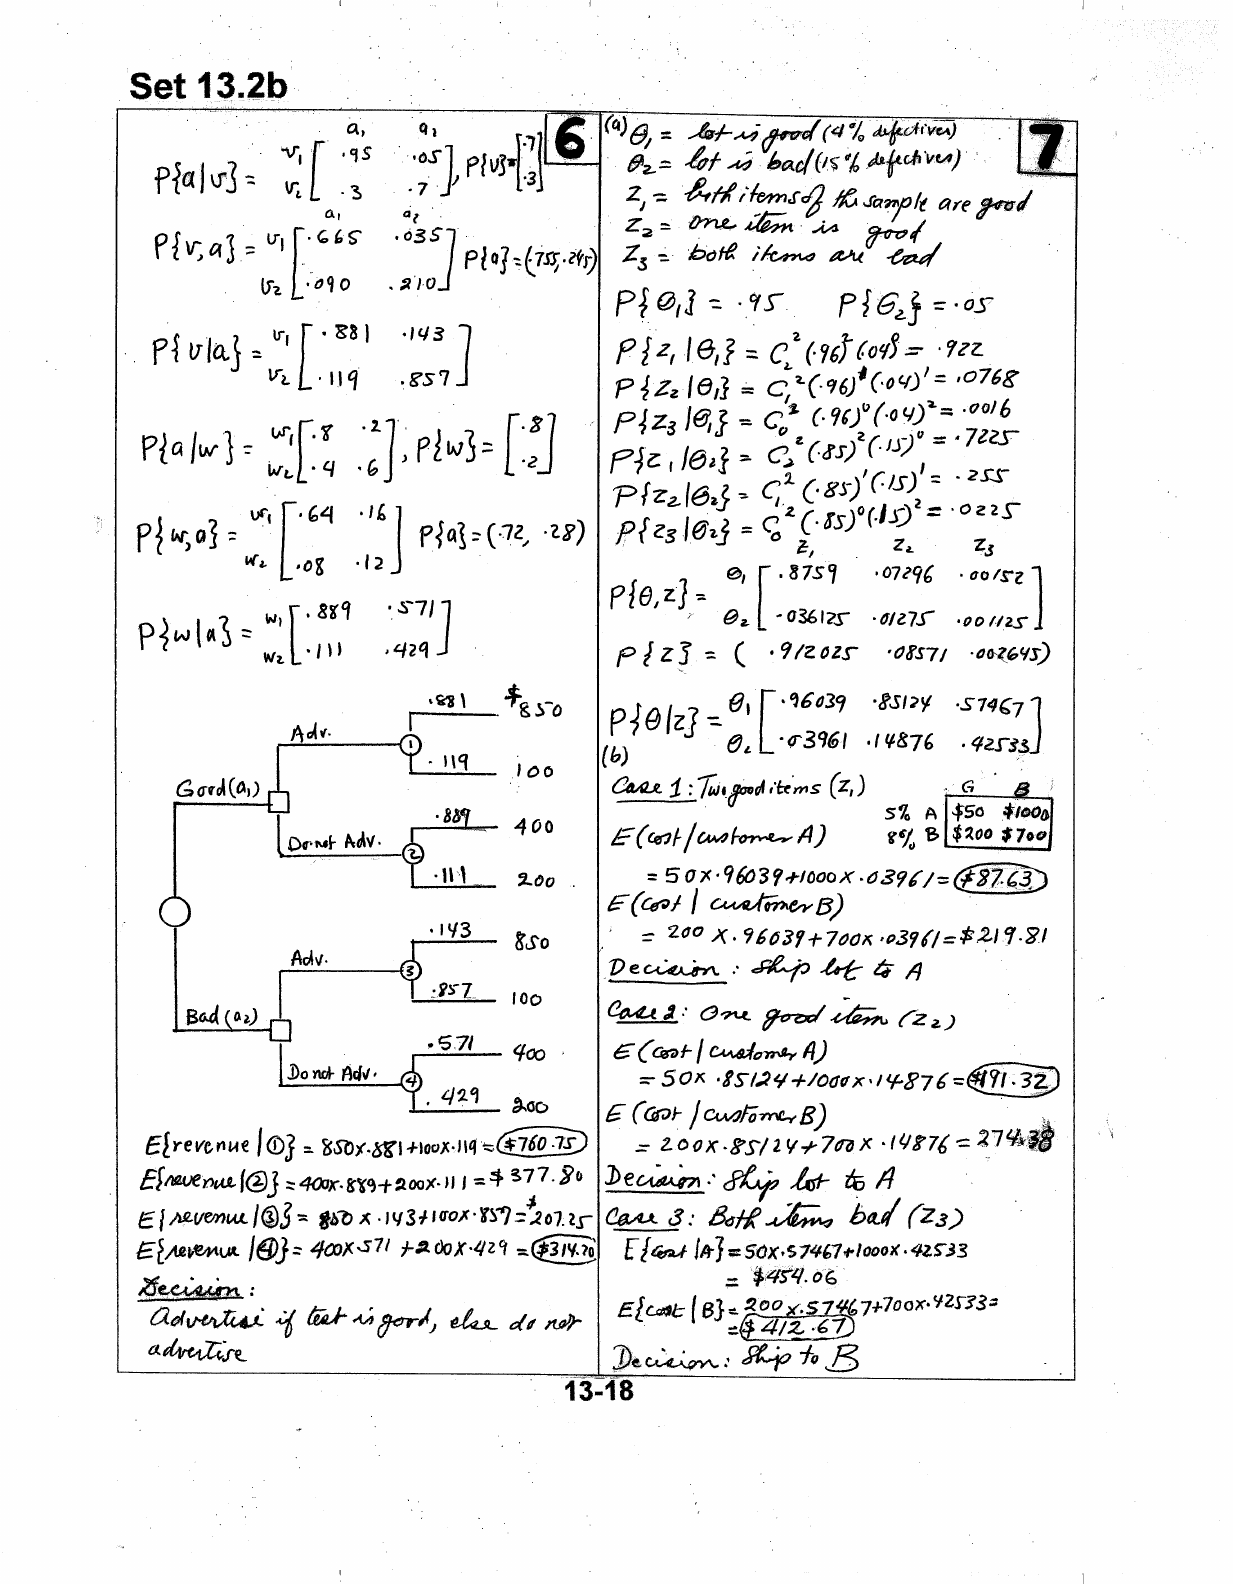 Set 13.2b
6
a₁ a₂
P{a|v} = v₁ [ .95 .05 ], P{v} = [ .7 ]
v₂ [ .3 .7 ] [ .3 ]
a₁ a₂
P{v,a} = v₁ [ .665 .035 ] P{a} = (.755, .245)
v₂ [ .090 .210 ]
P{v|a} = v₁ [ .881 .143 ]
v₂ [ .119 .857 ]
P{a|w} = w₁ [ .8 .2 ], P{w} = [ .8 ]
w₂ [ .4 .6 ] [ .2 ]
P{w,a} = w₁ [ .64 .16 ] P{a} = (.72, .28)
w₂ [ .08 .12 ]
P{w|a} = w₁ [ .889 .571 ]
w₂ [ .111 .429 ]
.881 $850
Adv. 1
.119 100
Good (a₁)
.889 400
Do not Adv. 2
.111 200
.143 850
Adv. 3
.857 100
Bad (a₂)
.571 400
Do not Adv. 4
.429 200
E{revenue |①} = 850x.881+100x.119 = $760.75
E{revenue |②} = 400x.889+200x.111 = $377.80
E{revenue |③} = 850 x .143+100x.857 = $207.25
E{revenue |④} = 400x.571 +200x.429 = $314.20
Decision :
advertise if test is good, else do not
advertise
7
(a) θ₁ = lot is good (4% defectives)
θ₂ = lot is bad (15% defectives)
Z₁ = both items of the sample are good
Z₂ = one item is good
Z₃ = both items are bad
P{θ₁} = .95 P{θ₂} = .05
P{z₁|θ₁} = C₂² (.96)² (.04)⁰ = .922
P{z₂|θ₁} = C₁² (.96)¹ (.04)¹ = .0768
P{z₃|θ₁} = C₀² (.96)⁰ (.04)² = .0016
P{z₁|θ₂} = C₂² (.85)² (.15)⁰ = .7225
P{z₂|θ₂} = C₁² (.85)¹ (.15)¹ = .255
P{z₃|θ₂} = C₀² (.85)⁰ (.15)² = .0225
z₁ z₂ z₃
P{θ,z} = θ₁ [ .8759 .07296 .00152 ]
θ₂ [ .036125 .01275 .001125 ]
P{z} = ( .912025 .08571 .002645)
P{θ|z} = θ₁ [ .96039 .85124 .57467 ]
θ₂ [ .03961 .14876 .42533 ]
(b)
Case 1 : Two good items (Z₁)
G B
5% A $50 $1000
8% B $200 $700
E(cost/customer A)
= 50x.96039+1000x.03961 = $87.63
E(cost | customer B)
= 200 x .96039+700x.03961 = $219.81
Decision : Ship lot to A
Case 2 : One good item (Z₂)
E(cost | customer A)
= 50x .85124+1000x.14876 = $191.32
E (cost | customer B)
= 200x.85124+700x .14876 = 274.38
Decision : Ship lot to A
Case 3 : Both items bad (Z₃)
E{cost |A} = 50x.57467+1000x.42533
= $454.06
E{cost | B} = 200x.57467+700x.42533=
= $412.67
Decision : Ship to B
13-18